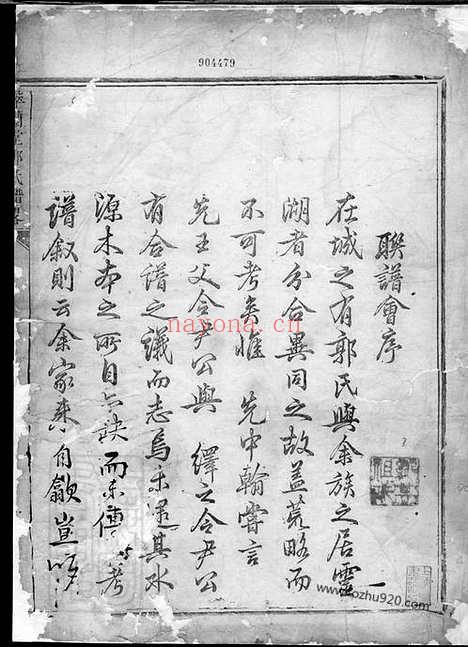 904479
聯譜會序
在城之有郭氏與余族之居靈
湖者分合異同之故蓋荒略而
不可考矣惟 先中翰嘗言
先王父令尹公與 繹之令尹公
有合譜之議而志焉未逮其水
源木本之所自云缺而未傳 考
譜叙則云余家來自歙豈
nayona.cn
www.pozhu920.com